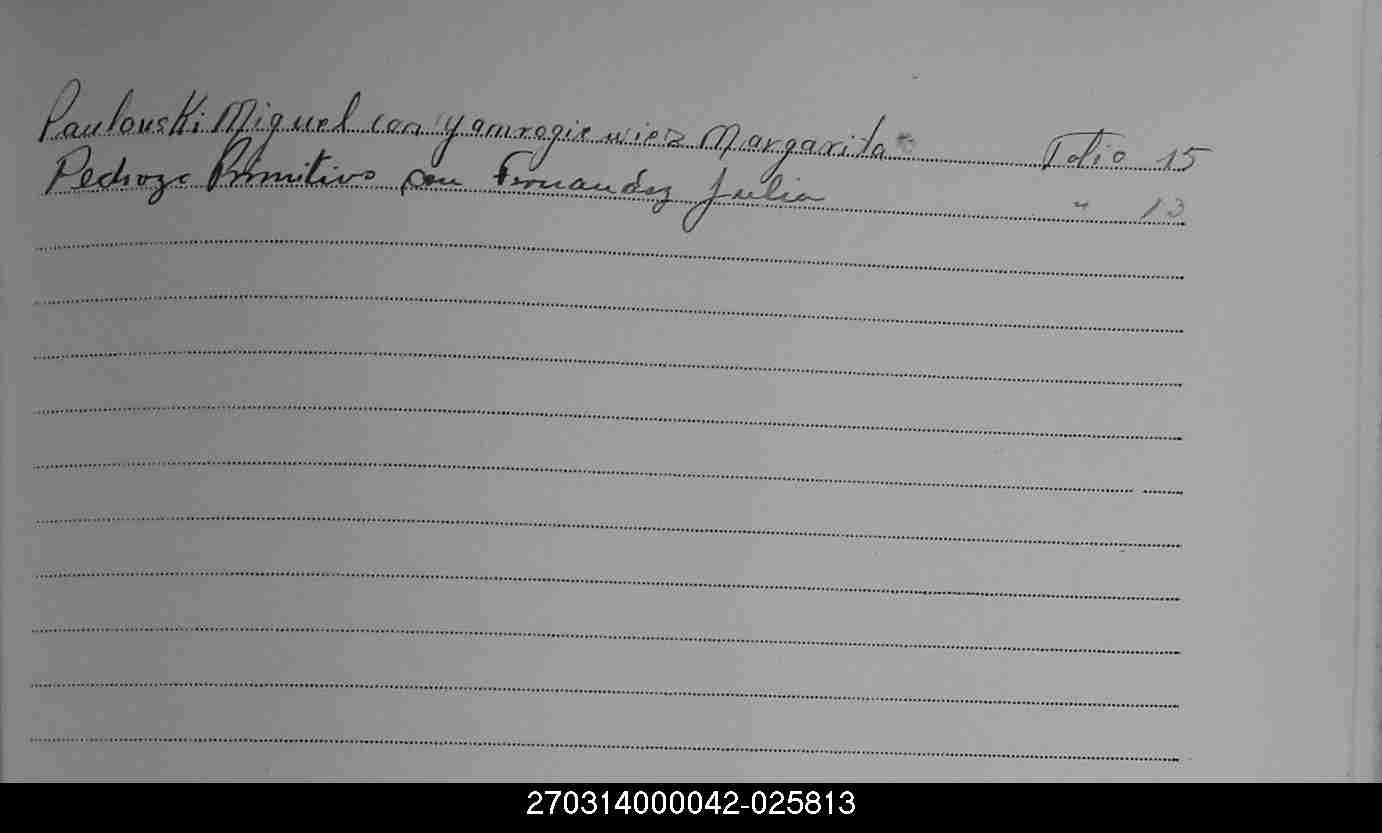 Paulouski Miguel con Yamrogiewiez Margarita Folio 15
Pedrozo Primitivo con Fernandez Julia " 13
270314000042-025813